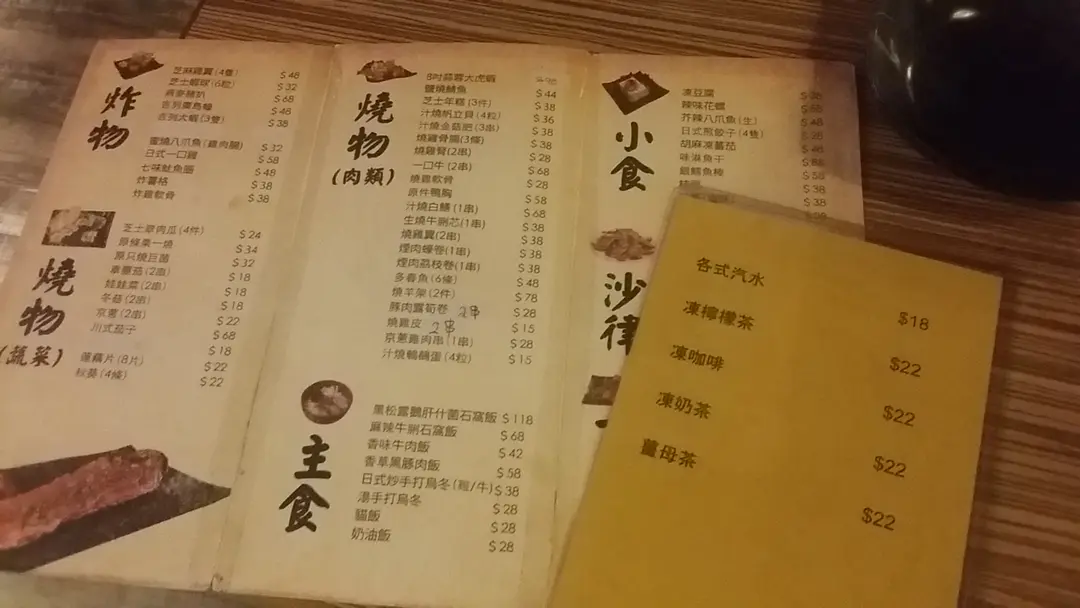 炸物
芝麻雞翼(4隻) $48
芝士蝦球(6粒) $32
$68
吉列廣島蠔 $48
吉列大蝦(3隻) $38
蜜燒八爪魚(雞肉腸) $32
日式一口雞 $58
七味魷魚鬚 $48
炸薯格 $38
炸雞軟骨 $38
燒物
(蔬菜)
芝士翠肉瓜(4件) $24
原條粟一燒 $34
原只燒巨菌 $32
草菇(2串) $18
娃娃菜(2串) $18
冬菇(2串) $18
京蔥(2串) $22
川式茄子 $68
蓮藕片(8片) $18
秋葵(4條) $22
$22
燒物
(肉類)
8吋蒜蓉大虎蝦
鹽燒鯖魚 $44
芝士年糕(3件) $38
汁燒帆立貝(4粒) $36
汁燒金菇肥(3串) $38
燒雞骨腸(3條) $38
燒雞腎(2串) $28
一口牛(2串) $68
燒雞軟骨 $28
原件鴨胸 $58
汁燒白鱔(1串) $68
生燒牛脷芯(1串) $38
燒雞翼(2串) $38
煙肉蠔卷(1串) $38
煙肉荔枝卷(1串) $38
多春魚(6條) $48
燒羊架(2件) $78
豚肉露筍卷 2串 $28
燒雞皮 2串 $15
京蔥雞肉串(1串) $28
汁燒鵪鶉蛋(4粒) $15
主食
黑松露鵝肝什菌石窩飯 $118
麻辣牛脷石窩飯 $68
香味牛肉飯 $42
香草黑豚肉飯 $58
日式炒手打烏冬(雞/牛) $38
湯手打烏冬 $28
貓飯 $28
奶油飯 $28
小食
凍豆腐
辣味花螺
芥辣八爪魚(生)
日式煎餃子(4隻)
胡麻凍蕃茄
味淋魚干
銀鱈魚棒
沙律
各式汽水 $18
凍檸檬茶 $22
凍咖啡 $22
凍奶茶 $22
薑母茶 $22